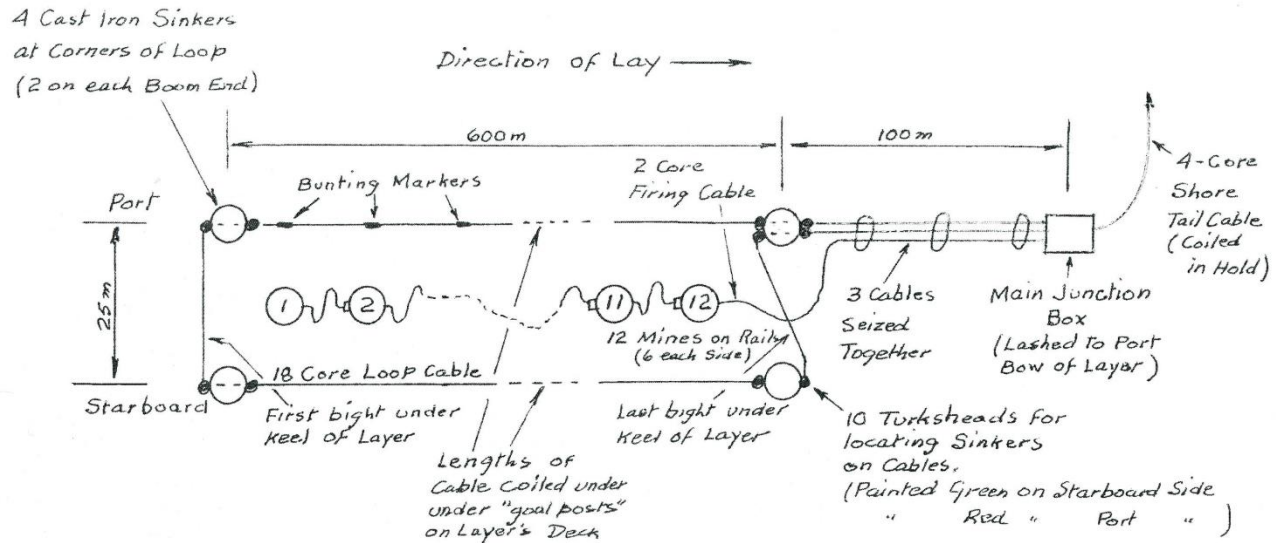 4 Cast Iron Sinkers
at Corners of Loop
(2 on each Boom End)
Direction of Lay
600m
100m
4-Core
Shore
Tail Cable
(Coiled
in Hold)
2 Core
Firing Cable
Bunting Markers
Port
25m
1
2
11
12
12 Mines on Rails
(6 each Side)
3 Cables
Seized
Together
Main Junction
Box
(Lashed to Port
Bow of Layer)
18 Core Loop Cable
Starboard
First bight under
Keel of Layer
Last bight under
Keel of Layer
Lengths of
Cable Coiled under
under "goal posts"
on Layer's Deck
10 Turksheads for
locating Sinkers
on Cables.
(Painted Green on Starboard Side
" Red " Port " )